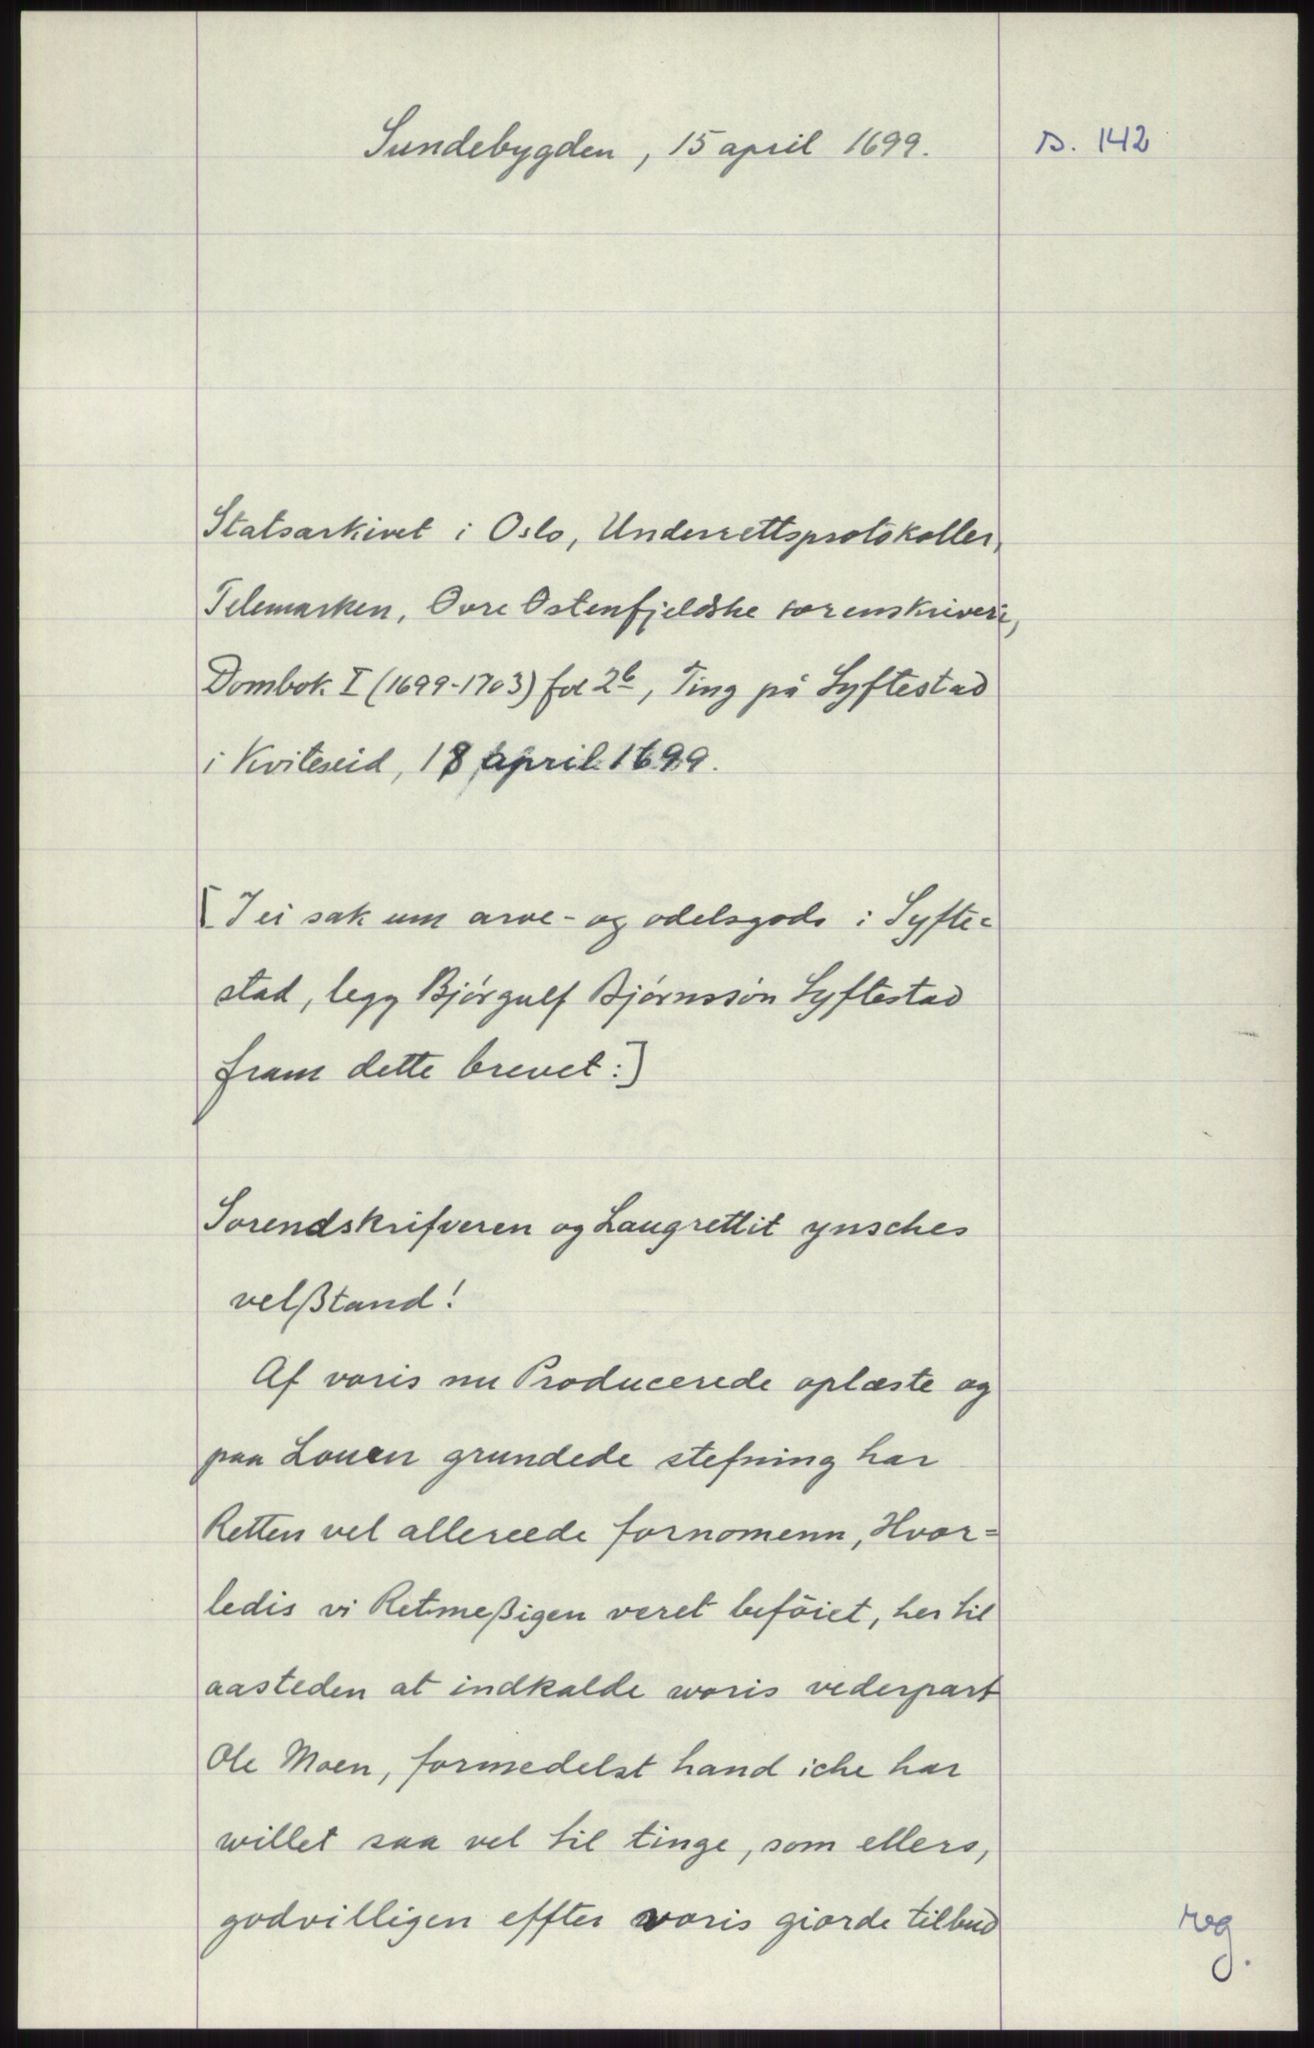 Sundebygden, 15 april 1699.
s. 142
Statsarkivet i Oslo, Underrettsprotokoller,
Telemarken, Øvre Østenfjeldske sorenskriveri,
Dombok I (1699-1703) fol 2b, Ting på Syftestad
i Kviteseid, 18 april 1699.
[I ei sak um arve- og odelsgods i Syfte=
stad, legg Bjórgulf Bjórnssón Syftestad
fram dette brevet:]
Sorendskrifveren og Laugrettit ynsches
velßtand!
Af voris nu Producerede oplæste og
paa Louen grundede stefning har
Retten vel allereede fornomenn, Hvor=
ledis vi Retmeßigen veret beföiet, her til
aasteden at indkalde woris vederpart
Ole Moen, formedelst hand iche har
willet saa vel til tinge, som ellers,
godvilligen effter voris giorde tilbud
reg.